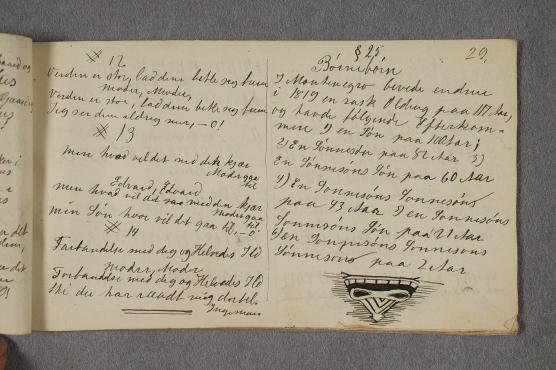 # 12
Verden er stor, lad dem betle sig frem
Moder, Moder,
Verden er stor, lad dem betle sig frem
Jeg ser dem aldrig mer, – O!
# 13
men hvad vil det med dit kjær
Moder gaa
til
Edvard, Edvard
men hvad vil det med din kjær
Moder gaa
til, – O
min Søn hvor vil det gaa til,
# 14
Forbandelse med dig og Helvedes Ild
Moder, Moder
Forbandelse med dig og Helvedes Ild
thi du har raadt mig dertil.
Ingemann
29,
§ 25
Börnebörn
I Montenegro levede endnu
i 1819 en rask Olding paa 117 Aar,
og havde følgende Efterkom-
mere 1) en Søn paa 100 Aar;
2) En Sönnesön paa 82 Aar 3)
En Sönnesöns Sön paa 60 Aar
4) En Sonnesöns Sonnesöns
paa 43 Aar 5) en Sonnesöns
Sonnesöns Sön paa 21 Aar
6) En Sonnesöns Sonnesöns
Sönnesön paa 2 Aar